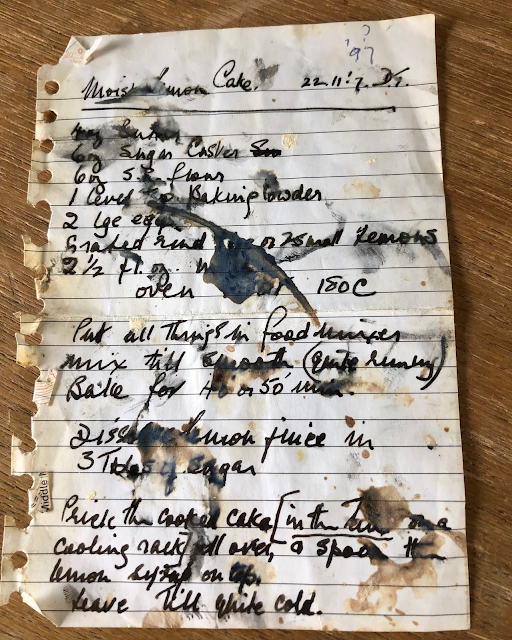 ? '97
Moist Lemon Cake. 22.11.
4oz Butter
6oz Sugar Caster
6oz S.R flour
1 level Baking Powder
2 lge eggs
Grated rind or 2 small Lemons
2 1/2 fl. oz.
oven 180C
Put all things in food mixer
mix till smooth (quite runny)
Bake for 40 or 50 min.
Dissolve lemon juice in
3 Tbles of Sugar
Prick the cooked cake [in the tin on a
cooling rack] all over, & spoon the
lemon syrup on top.
Leave till quite cold.
Middle